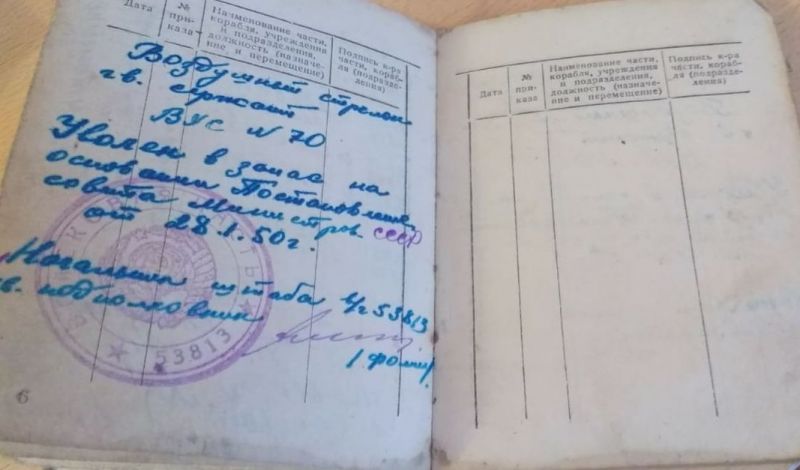 Дата
№ при- каза
Наименование части, корабля, учреждения и подразделения, должность (назначе- ние и перемещение)
Подпись к-ра части, кораб- ля (подразде- ления)
Воздушный стрелок
гв. сержант
ВУС N 70
Уволен в запас на
основании Постановление
совета Министров СССР
от 28.1.50г.
Начальник штаба в/ч 53813
гв. подполковник
ВОЙСКОВАЯ ЧАСТЬ
★ 53813 ★
6
Дата
№ при- каза
Наименование части, корабля, учреждения и подразделения, должность (назначе- ние и перемещение)
Подпись к-ра части, кораб- ля (подразде- ления)